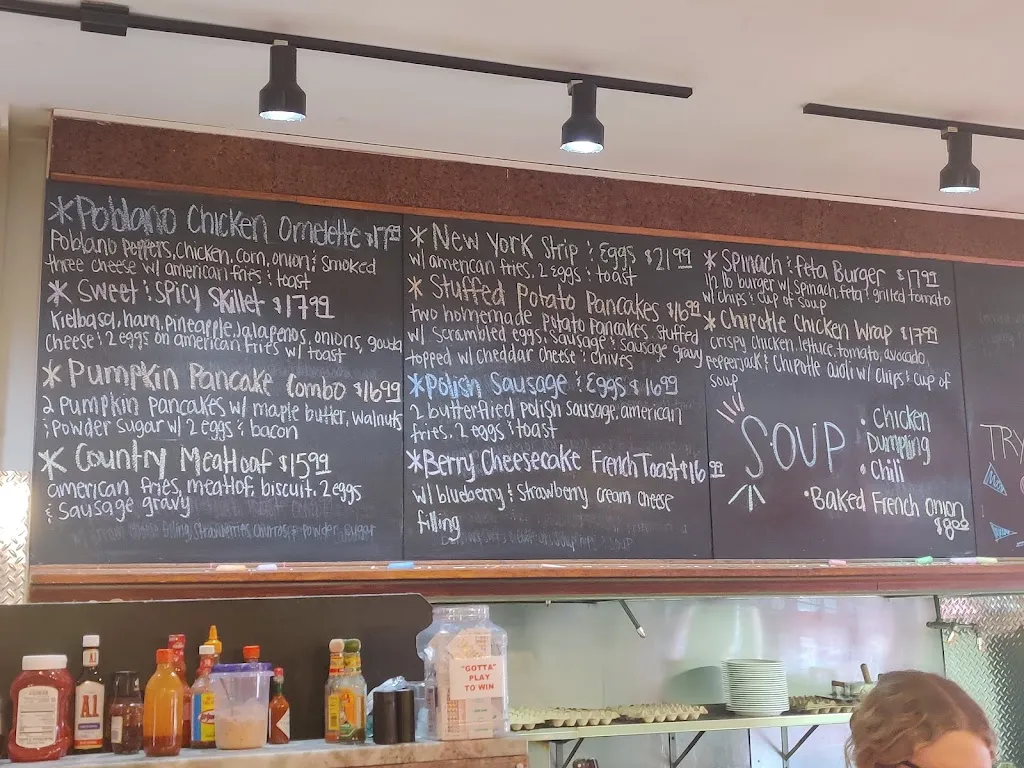 *Poblano Chicken Omelette $17.99
Poblano Peppers, Chicken, corn, onion & smoked
three cheese w/ american fries & toast
*Sweet & Spicy Skillet $17.99
Kielbasa, ham, pineapple, Jalapenos, onions, gouda
cheese & 2 eggs on american fries w/ toast
*Pumpkin Pancake Combo $16.99
2 Pumpkin Pancakes w/ maple butter, walnuts
& Powder Sugar w/ 2 eggs & bacon
*Country Meatloaf $15.99
american fries, meatlof, biscuit, 2 eggs
& Sausage gravy
*New York Strip & Eggs $21.99
w/ american fries, 2 eggs & toast
*Stuffed Potato Pancakes $16.99
two homemade Potato Pancakes stuffed
w/ scrambled eggs, sausage & sausage gravy
topped w/ cheddar cheese & chives
*Polish Sausage & Eggs $16.99
2 butterflied polish sausage, american
fries, 2 eggs & toast
*Berry Cheesecake French Toast $16.99
w/ blueberry & Strawberry cream cheese
filling
*Spinach & Feta Burger $17.99
1/2 lb burger w/ spinach, feta & grilled tomato
w/ chips & cup of soup
*Chipotle Chicken Wrap $17.99
crispy chicken, lettuce, tomato, avocado,
Pepperjack & Chipotle auoli w/ chips & cup of
soup
SOUP
• Chicken
Dumpling
• Chili
• Baked French onion
$8.00
TRY
A1
"GOTTA"
PLAY
TO WIN